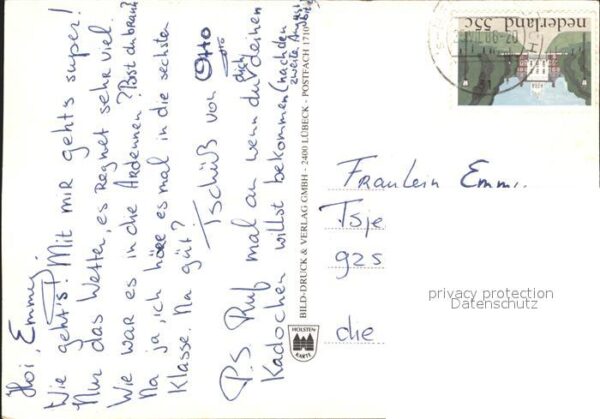 Hoi, Emmy!
Wie geht's? Mit mir geht's super!
Nur das Wetter, es Regnet sehr viel.
Wie war es in die Ardennen? Post du brauch
Na ja, ich höre es mal in die sechsten
Klasse. Na güt?
Tschüß von Otto
P.S. Ruf mal an wenn du dich deinen
Kadochen willst bekommen (nach den
zweite August
BILD-DRUCK & VERLAG GMBH - 2400 LÜBECK - POSTFACH 1710
HOLSTEN
KARTE
nederland
55c
Fraulein Emm
Tsje
925
die
privacy protection
Datenschutz